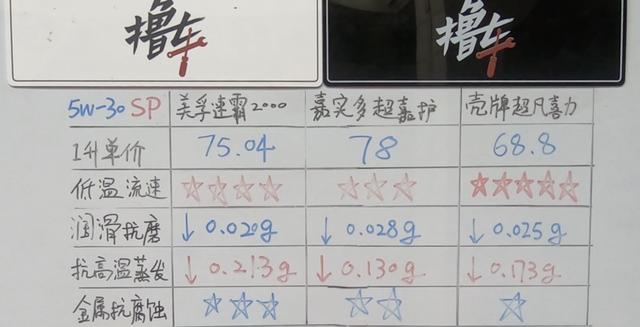 撸车 撸车
5W-30 SP 美孚速霸2000 嘉实多超嘉护 壳牌超凡喜力
1升单价 75.04 78 68.8
低温流速 ☆☆☆☆ ☆☆☆ ☆☆☆☆☆
润滑抗磨 ↓0.020g ↓0.028g ↓0.025g
抗高温蒸发 ↓0.213g ↓0.130g ↓0.173g
金属抗腐蚀 ☆☆☆ ☆☆ ☆